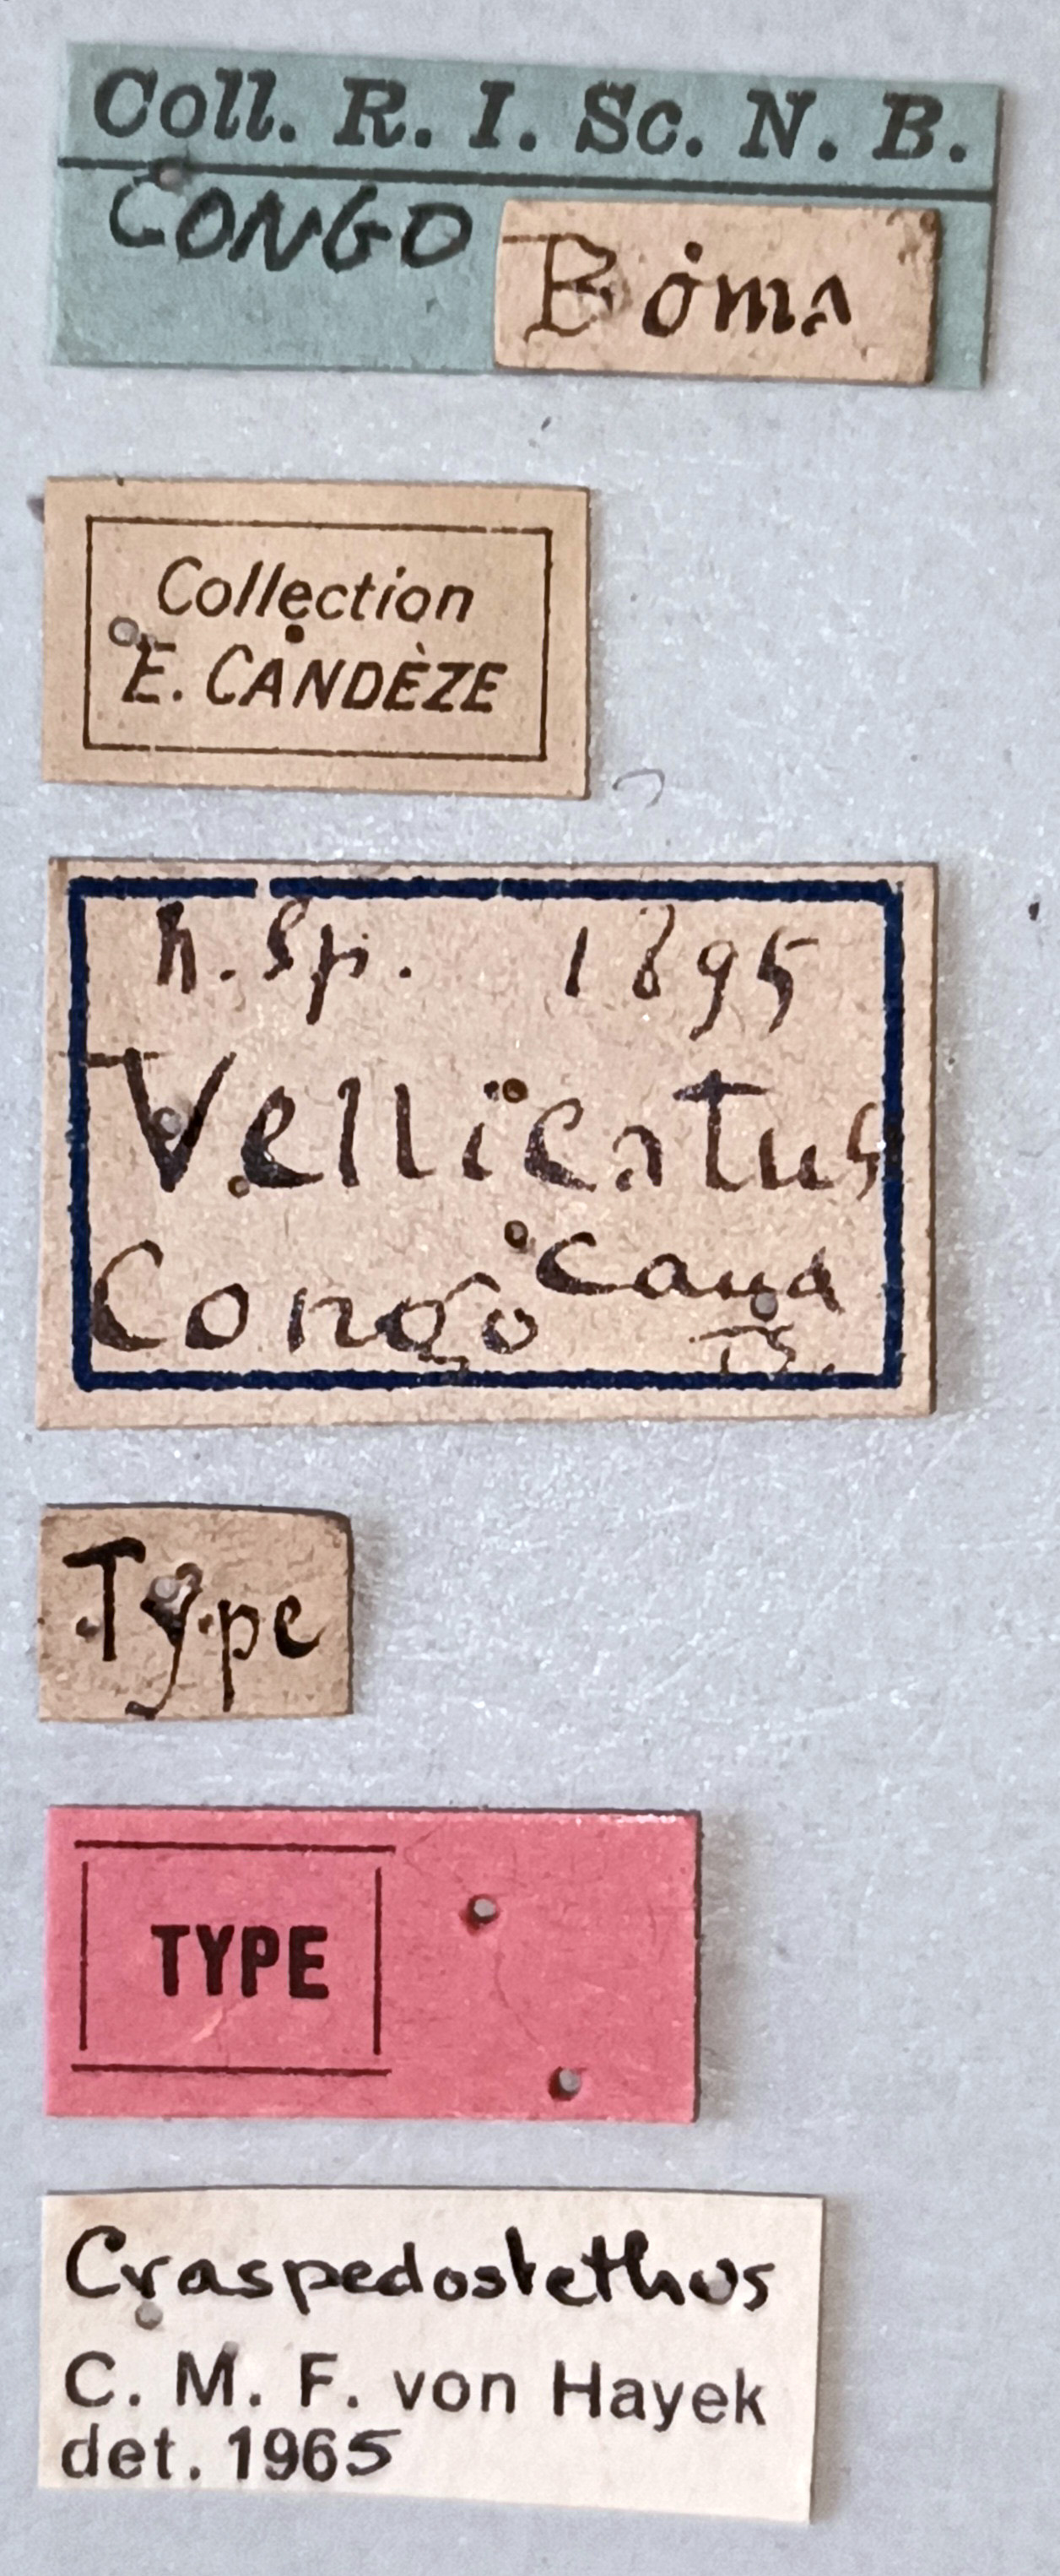 Coll. R. I. Sc. N. B.
CONGO
Boma
Collection
E. CANDÈZE
n. sp. 1895
Vellicatus
Cand
Congo
TYpe
TYPE
Craspedostethus
C. M. F. von Hayek
det. 1965